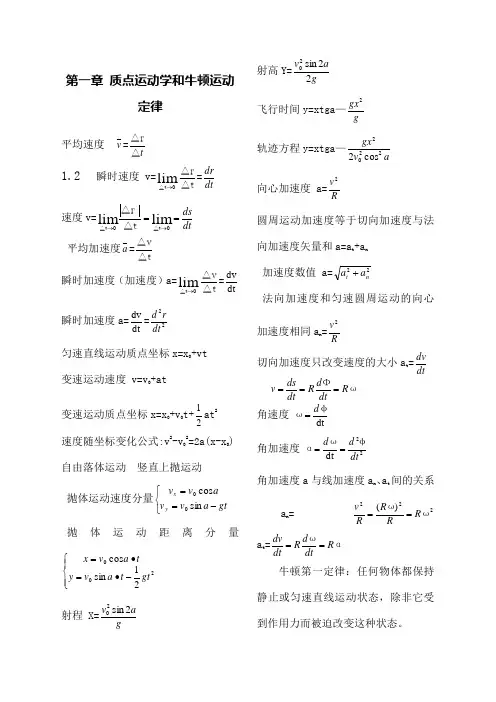 第一章 质点运动学和牛顿运动
定律
平均速度 v̄=△r/△t
1.2 瞬时速度 v=lim(△t→0) △r/△t=dr/dt
速度v=lim(△t→0)|△r|/△t=lim(△t→0)=ds/dt
平均加速度ā=△v/△t
瞬时加速度（加速度）a=lim(△t→0) △v/△t=dv/dt
瞬时加速度a=dv/dt=d²r/dt²
匀速直线运动质点坐标x=x₀+vt
变速运动速度 v=v₀+at
变速运动质点坐标x=x₀+v₀t+1/2 at²
速度随坐标变化公式:v²-v₀²=2a(x-x₀)
自由落体运动 竖直上抛运动
抛体运动速度分量{vₓ=v₀cosa
v_y=v₀sina-gt
抛体运动距离分量
{x=v₀cosa•t
y=v₀sina•t-1/2 gt²
射程 X=v₀²sin2a/g
射高Y=v₀²sin2a/2g
飞行时间y=xtga—gx²/g
轨迹方程y=xtga—gx²/2v₀²cos²a
向心加速度 a=v²/R
圆周运动加速度等于切向加速度与法
向加速度矢量和a=aₜ+aₙ
加速度数值 a=√(aₜ²+aₙ²)
法向加速度和匀速圆周运动的向心
加速度相同aₙ=v²/R
切向加速度只改变速度的大小aₜ=dv/dt
v=ds/dt=R dΦ/dt=Rω
角速度 ω=dφ/dt
角加速度 α=dω/dt=d²φ/dt²
角加速度a与线加速度aₙ、aₜ间的关系
aₙ= v²/R=(Rω)²/R=Rω²
aₜ=dv/dt=R dω/dt=Rα
牛顿第一定律：任何物体都保持
静止或匀速直线运动状态，除非它受
到作用力而被迫改变这种状态。